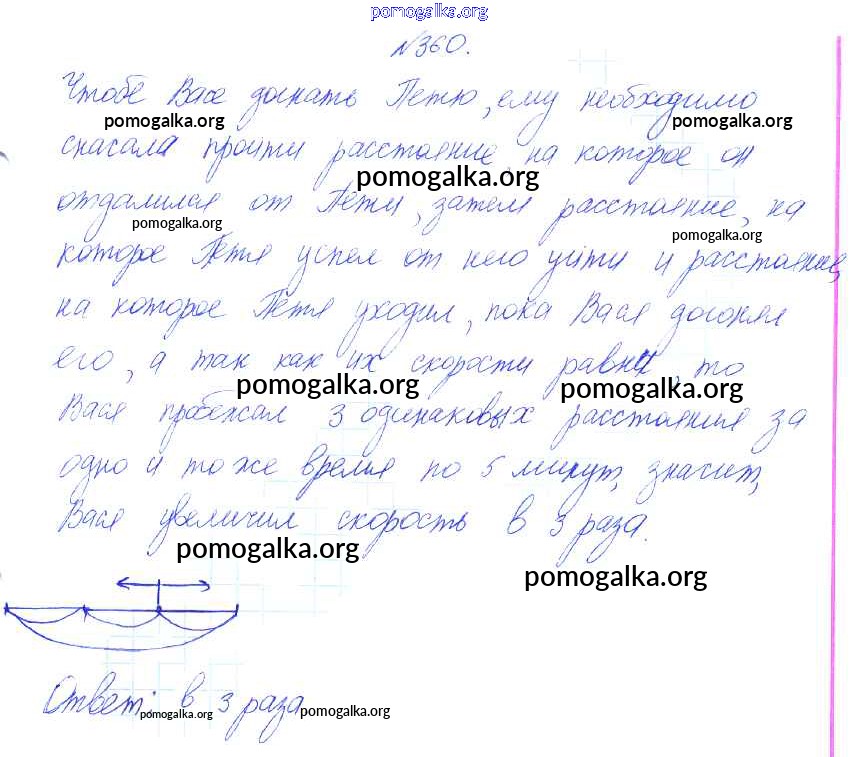 pomogalka.org
№360.
Чтобе Васе догнать Петю, ему необходимо
pomogalka.org pomogalka.org
сначала пройти расстояние, на которое он
pomogalka.org
отдалился от Пети, затем расстояние, на
pomogalka.org pomogalka.org
которое Петя успел от него уйти и расстояние,
на которое Петя уходил, пока Вася догонял
его, а так как их скорости равны, то
pomogalka.org pomogalka.org
Вася пробежал 3 одинаковых расстояния за
одно и то же время по 5 минут, значит,
Вася увеличил скорость в 3 раза.
pomogalka.org
pomogalka.org
Ответ: в 3 раза
pomogalka.org pomogalka.org